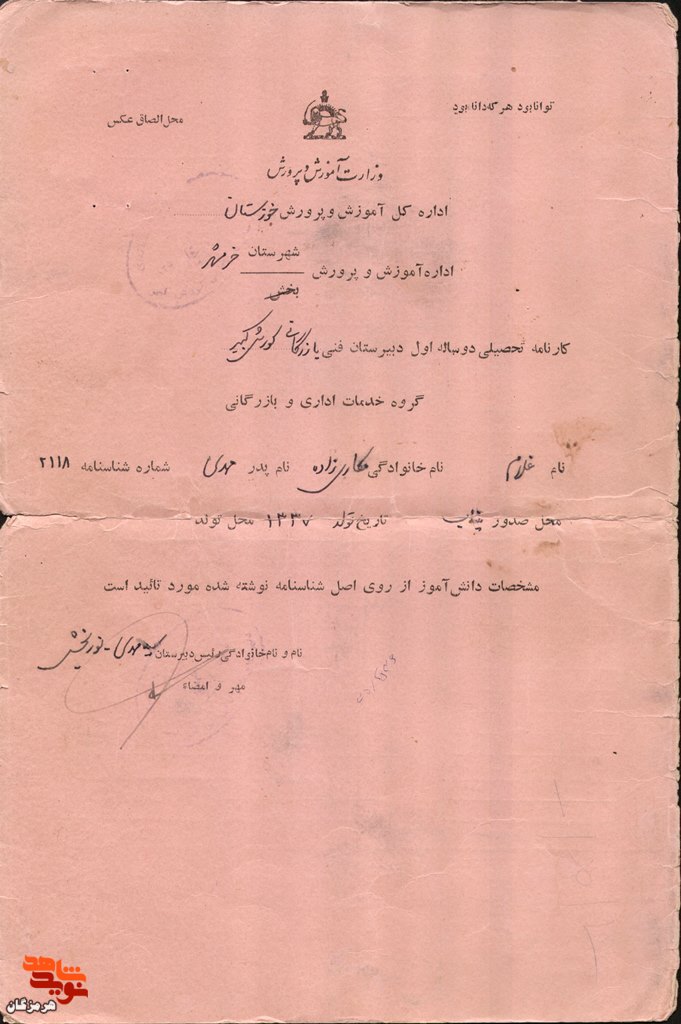 توانا بود هر که دانا بود
محل الصاق عکس
وزارت آموزش و پرورش
اداره کل آموزش و پرورش خوزستان
اداره آموزش و پرورش شهرستان خرمشهر
بخش
کارنامه تحصیلی دوساله اول دبیرستان فنی یا بازرگانی کورش کبیر
گروه خدمات اداری و بازرگانی
نام غلام نام خانوادگی مکاری زاده نام پدر مهدی شماره شناسنامه ۲۱۱۸
محل صدور تاریخ تولد ۱۳۳۷ محل تولد
مشخصات دانش آموز از روی اصل شناسنامه نوشته شده مورد تائید است
نام و نام خانوادگی رئیس دبیرستان سید مهدی نوربخش
مهر و امضاء
نوید شاهد
هرمزگان